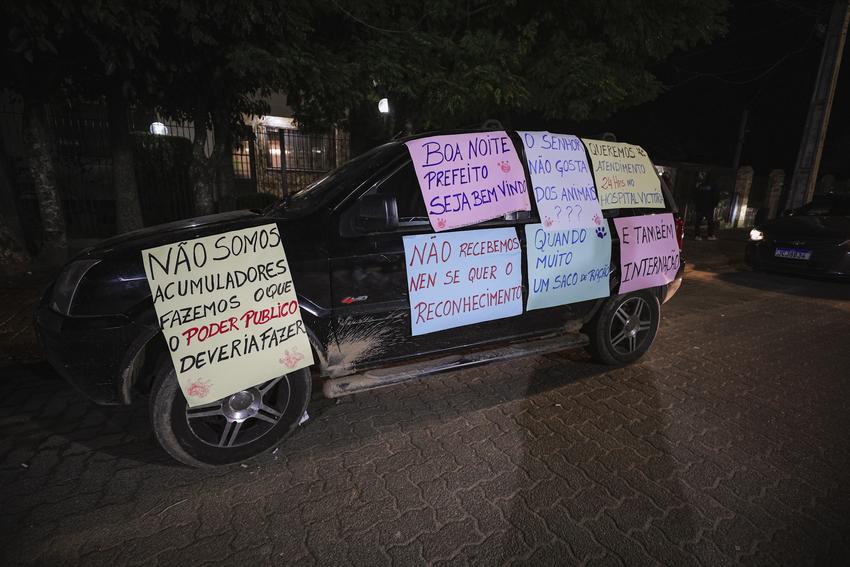 NÃO SOMOS
ACUMULADORES
FAZEMOS O QUE
O PODER PUBLICO
DEVERIA FAZER
BOA NOITE
PREFEITO
SEJA BEM VINDO
O SENHOR
NÃO GOSTA
DOS ANIMAIS
???
QUEREMOS
ATENDIMENTO
24 HRS NO
HOSPITAL VICTÓRIA
NÃO RECEBEMOS
NEN SE QUER O
RECONHECIMENTO
QUANDO
MUITO
UM SACO DE RAÇÃO
E TAMBÉM
INTERNAÇÃO